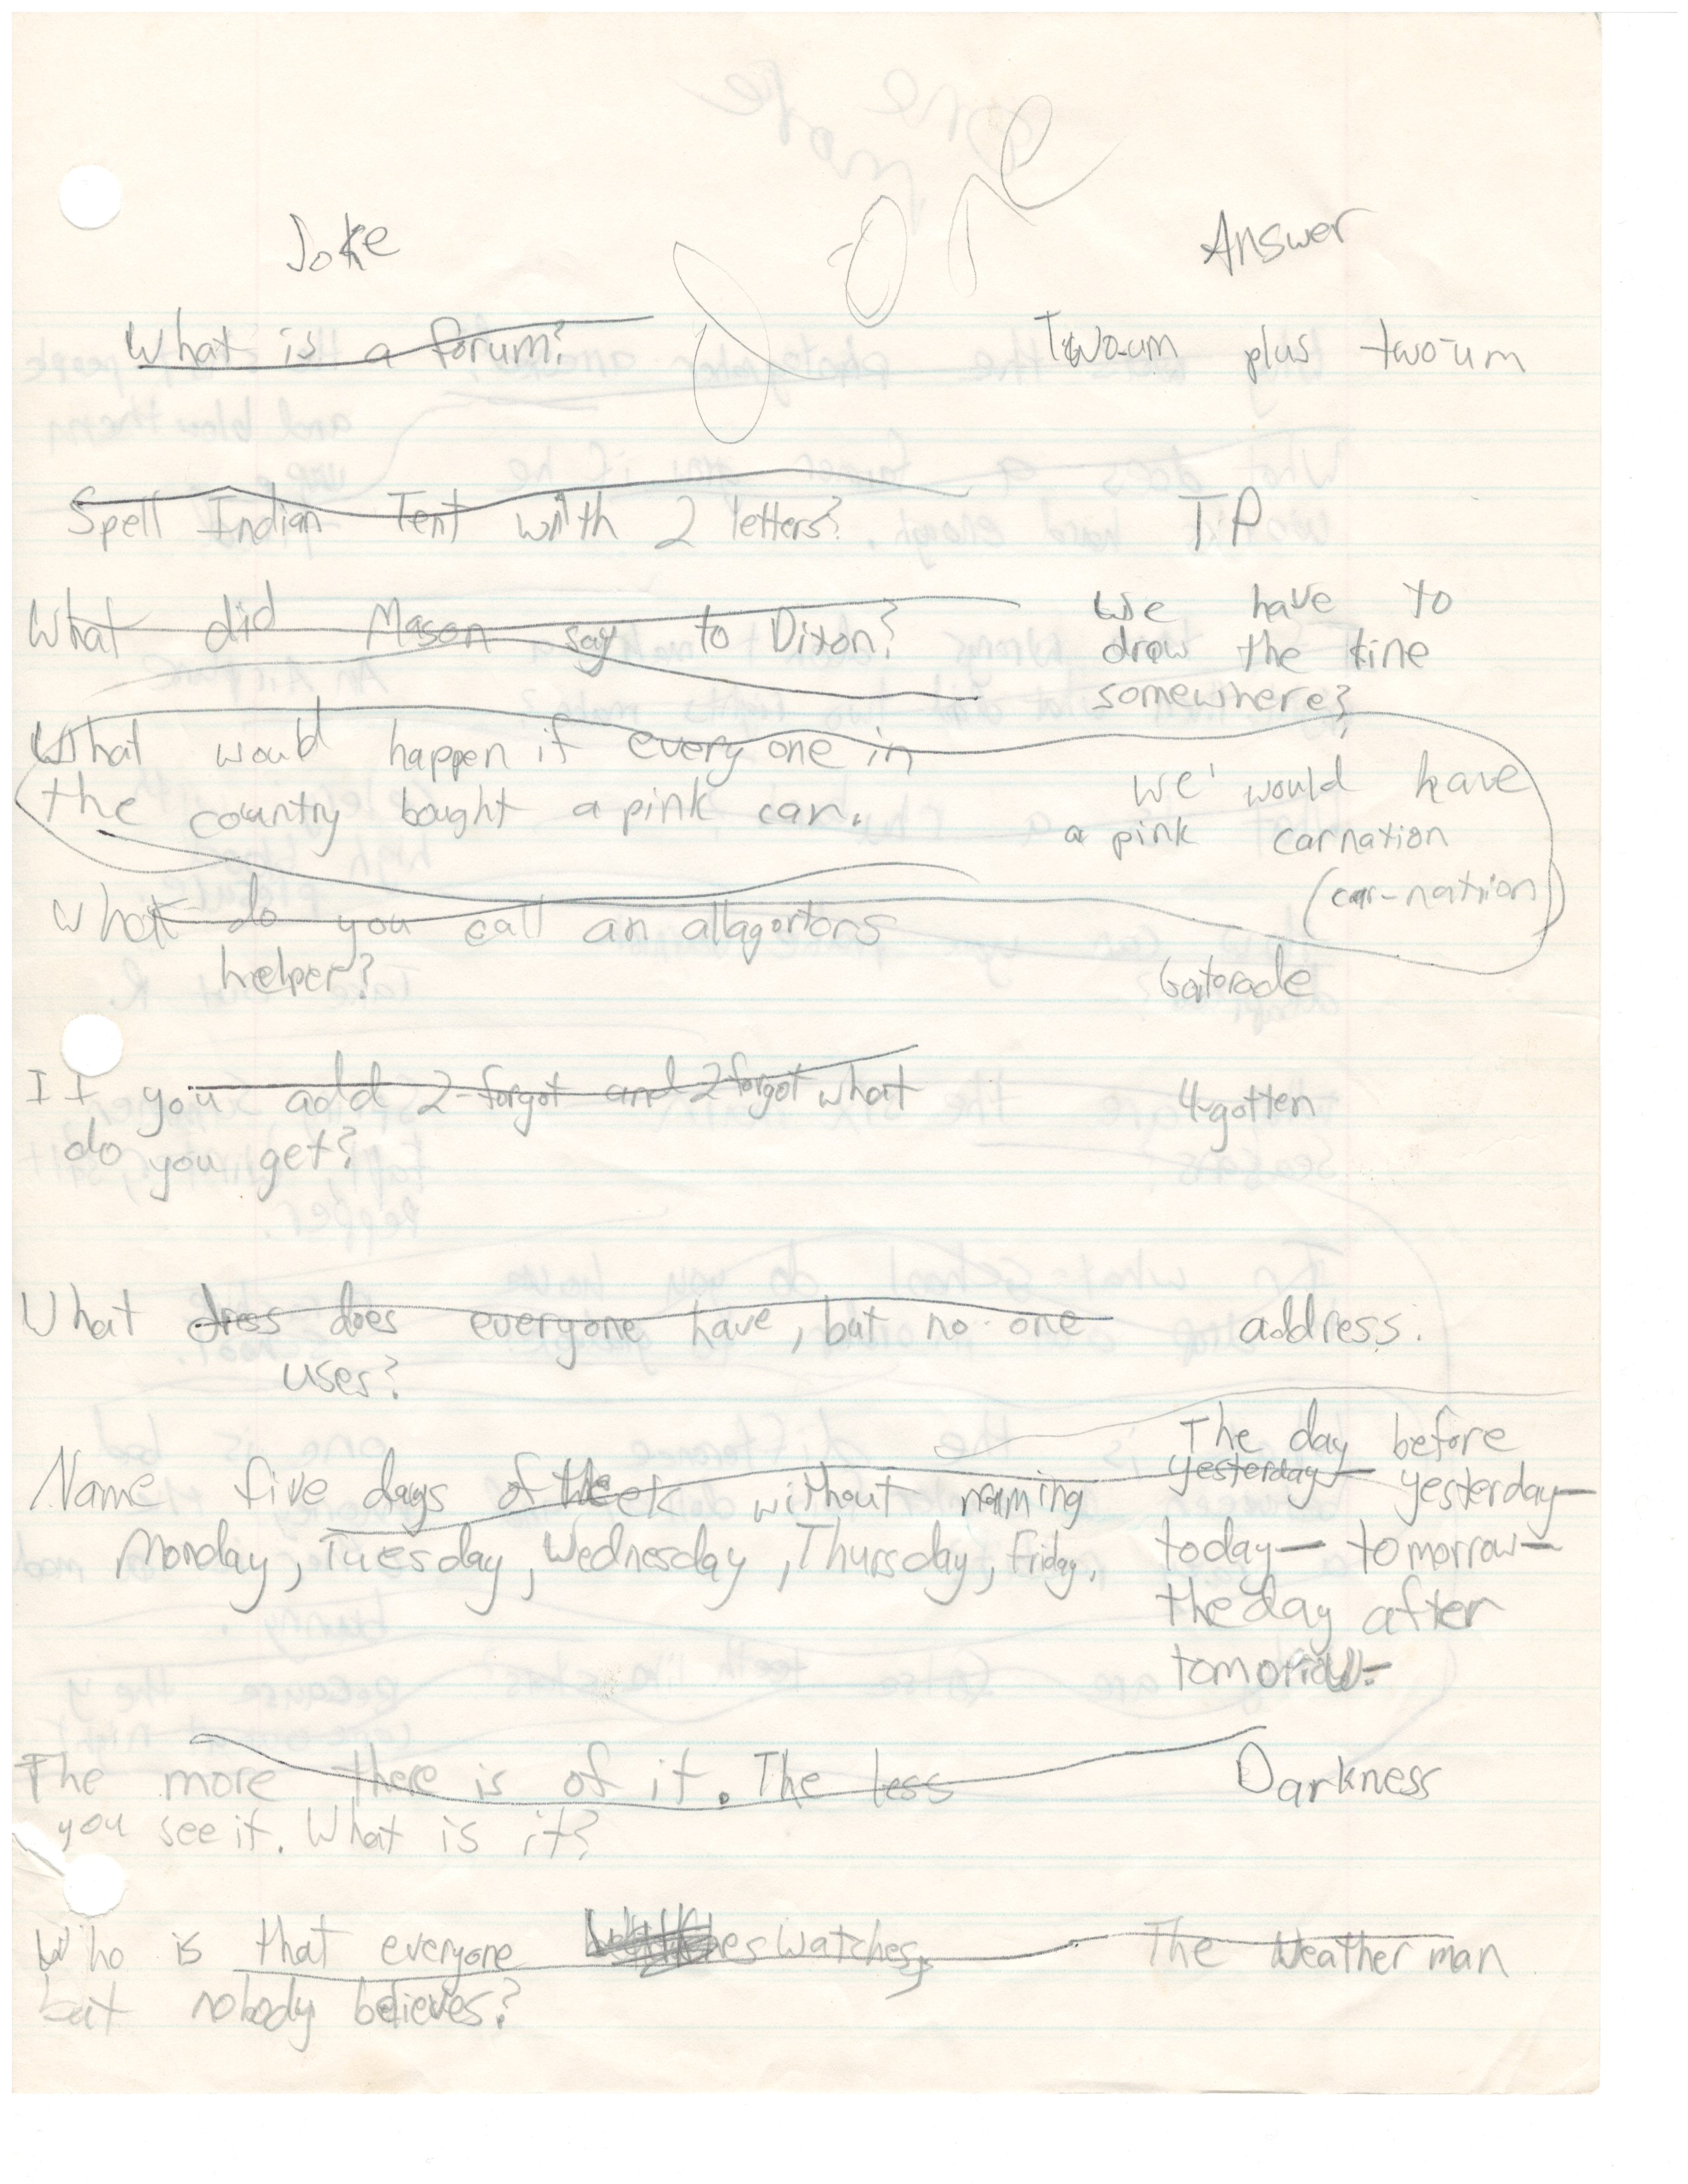 Done
Joke Answer
What is a forum? Two-um plus two-um
Spell Indian Tent with 2 letters? TP
What did Mason say to Dixon? We have to
draw the line
somewhere?
What would happen if every one in
the country bought a pink car. We' would have
a pink carnation
(car-nation)
What do you call an allagortors
helper? Gatorade
If you add 2-forgot and 2 forgot what
do you get? 4-gotten
What dress does everyone have, but no one
uses? address.
The day before
yesterday— yesterday—
Name five days of the week without naming
Monday, Tuesday, Wednesday, Thursday, Friday. today— tomorrow—
the day after
tomorrow-
The more there is of it. The less
you see it. What is it? Darkness
Who is that everyone watches, The Weather man
but nobody believes?